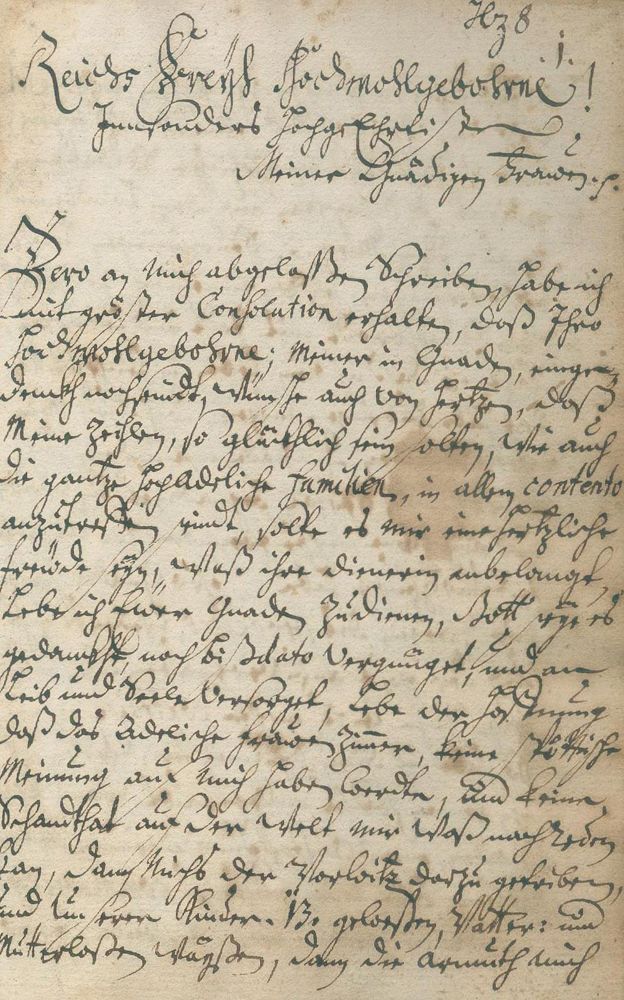 N 8
1.
Reichs Freyh Hochwohlgebohrne!
Innsonders HochgeEhrtiste
Meiner Gnädigen Frawen. p.
Dero an Mich abgelassßen Schreiben, habe ich
mit gröster Consolation erhalten, daß Ihro
Hochwohlgebohrne; Meiner in Gnaden, einge-
denkh noch seindt, Wünsche auch von Hertzen, daß
Meine Zeihlen, so glückhlich sein solten, wie auch
die gantze HochAdeliche Familien, in allem contento
anzutreffen seindt, solte es mir eine hertzliche
freüde seyn, Waß ihre dienerin anbelangt,
Lebe ich Ewer Gnaden Zu dienen, Gott seye es
gedanckht, noch biß dato Vergnüget, und an
Leib und Seele Versorget, Lebe der Hoffnung
daß das Adeliche Frauen Zimmer, keine spöttische
Meinung auf Mich haben werdte, und keine
Schandthat auf der Welt mir Waß nachreden
kan, dann Mich der Vorwitz darzu getriben,
und Unserer Kinder. 13. geweßen, Vatter: und
Mutterloßen Wayßen, dann die Armuth mich